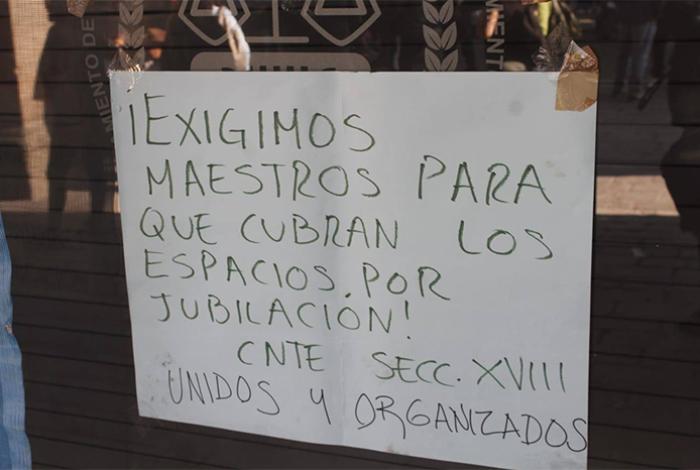 MIENTO DE
MIENT
¡EXIGIMOS
MAESTROS PARA
QUE CUBRAN LOS
ESPACIOS. POR
JUBILACIÓN!
CNTE SECC. XVIII
UNIDOS Y ORGANIZADOS